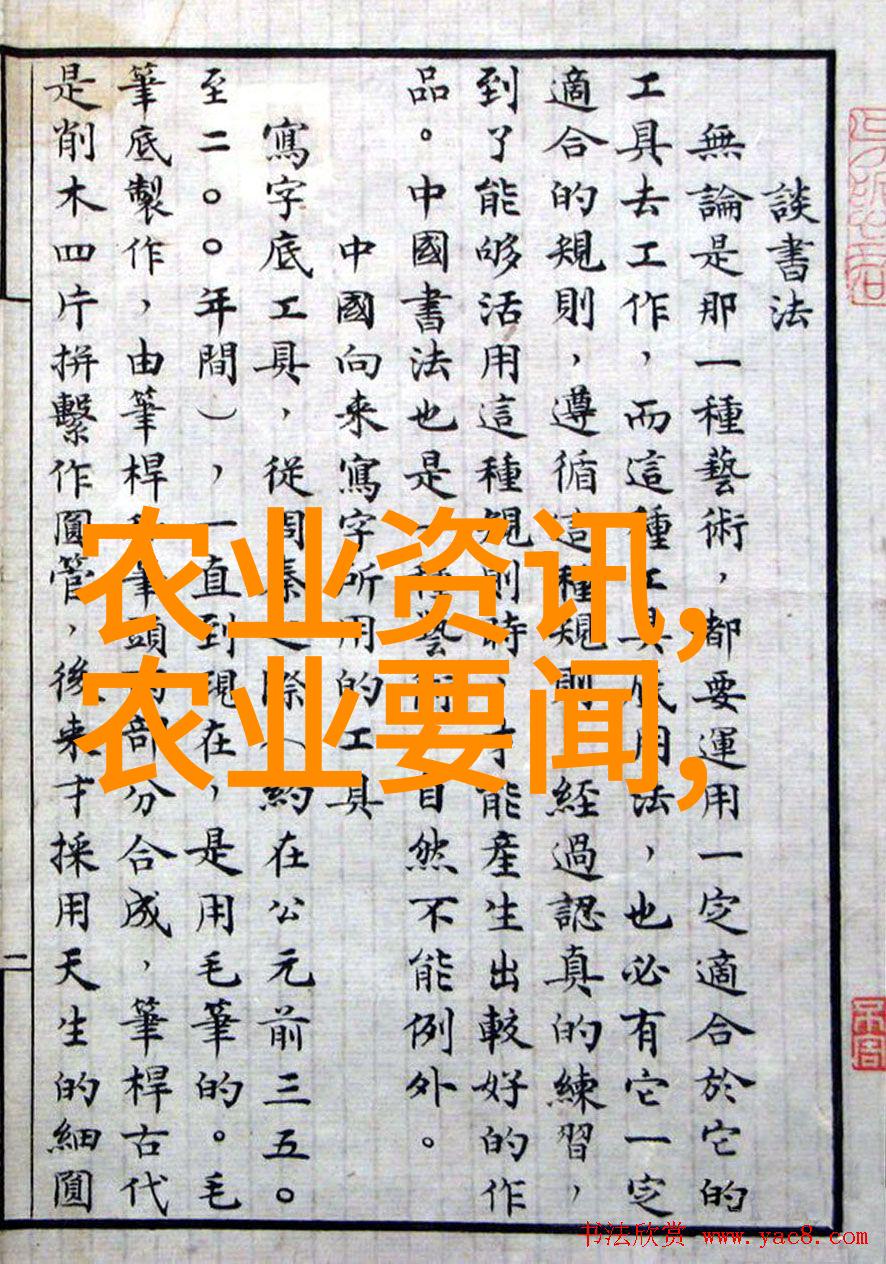 談書法
無論是那一種藝術，都要運用一定適合於它的
工具去工作，而這種工具底用法，也必有它一定
適合的規則，遵循這種規則，經過認真的練習，
到了能够活用這種規則時，才能產生出較好的作
品。中國書法也是一種藝術，自然不能例外。
中國向来寫字所用的工具
寫字底工具，從周秦之際（約在公元前三五〇
至二〇〇年間），一直到現在，是用毛筆的。毛
筆底製作，由筆桿筆頭兩部分合成，筆桿古代
是削木四片拼繫作圓管，後来才採用天生的細圓
农业资讯,
农业要闻,
书法欣赏 www.yac8.com